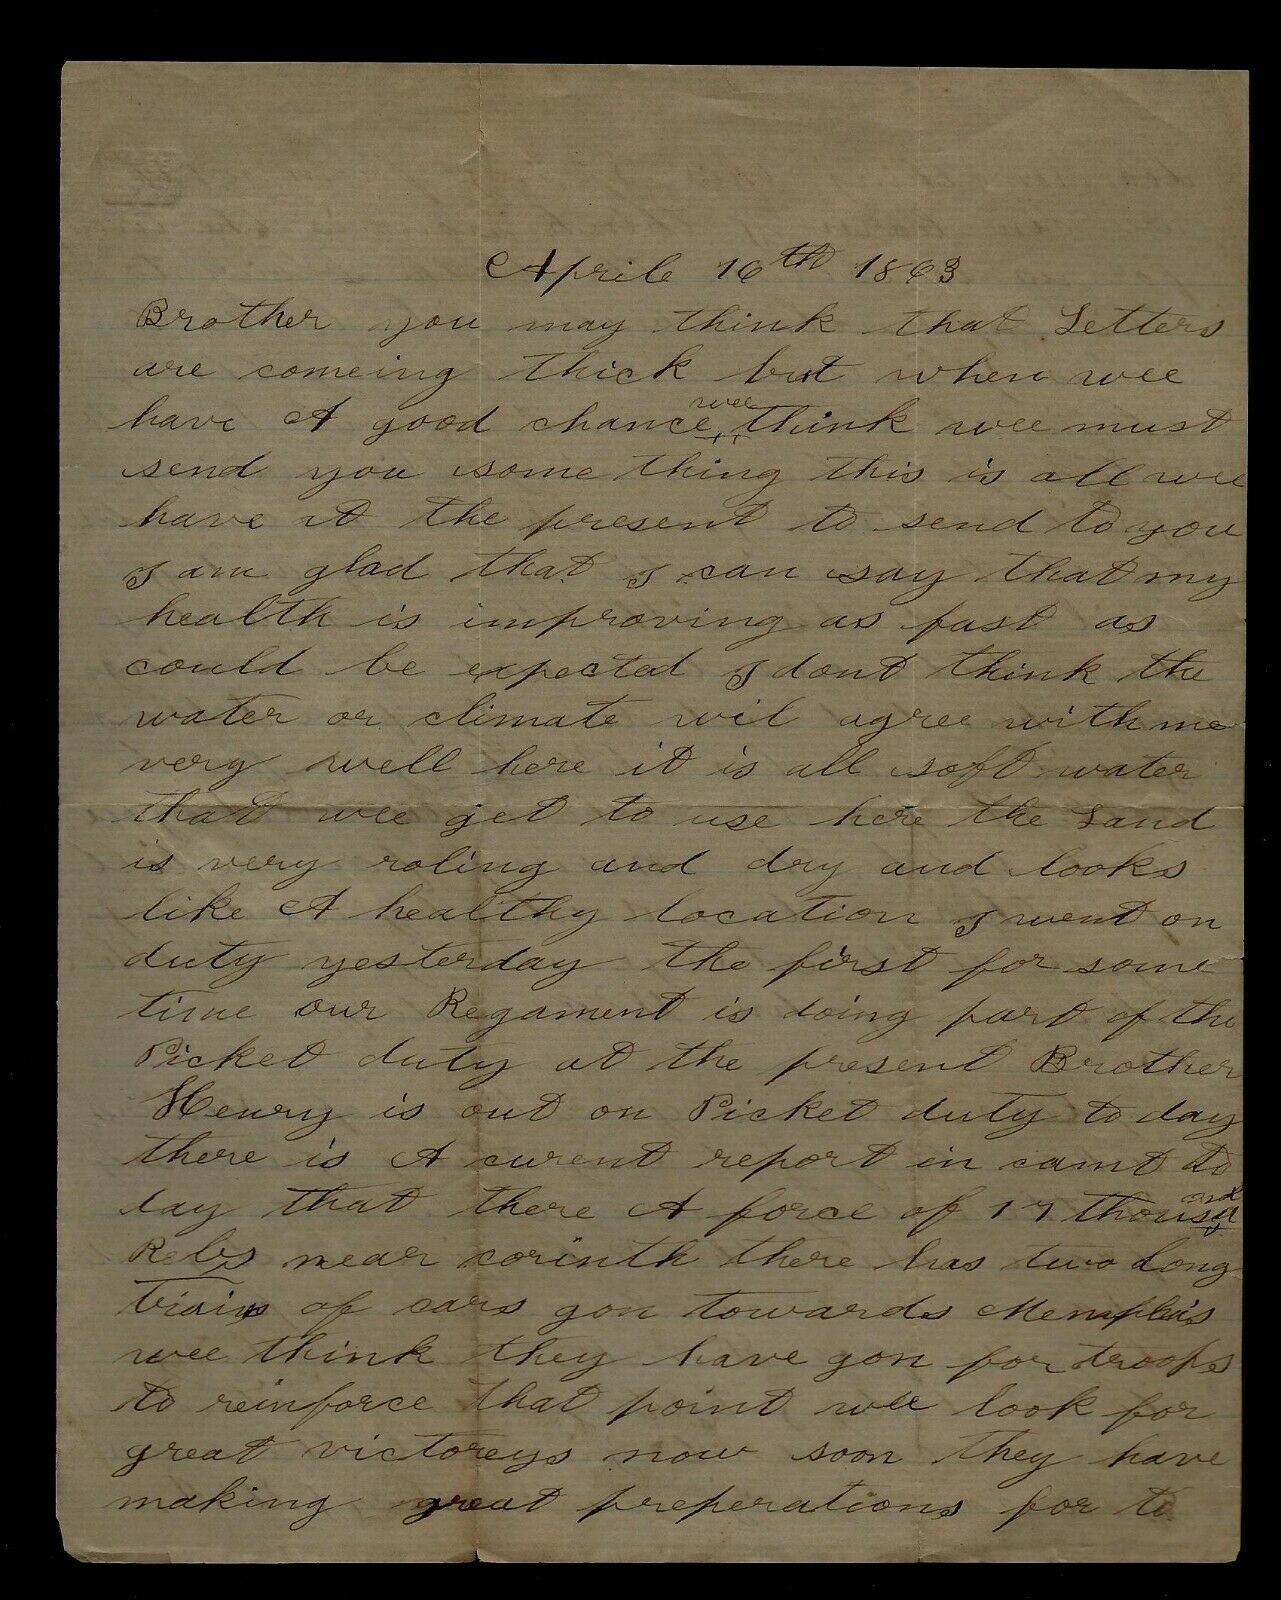 Aprile 16th 1863
Brother you may think that Letters
are comeing thick but when wee
have A good chance wee think wee must
send you some thing this is all wee
have at the present to send to you
I am glad that I can say that my
health is improving as fast as
could be expected I dont think the
water or climate wil agree with me
very well here it is all soft water
that wee get to use here the Land
is very roling and dry and looks
like A healthy location I went on
duty yesterday the first for some
time our Regament is doing part of the
Picket duty at the present Brother
Henry is out on Picket duty to day
there is A curent report in camt to
day that there A force of 17 thousand
Rebs near corinth there has two long
trains of cars gon towards Memphis
wee think they have gon for troops
to reinforce that point wee look for
great victoreys now soon they have
making great preperations for to